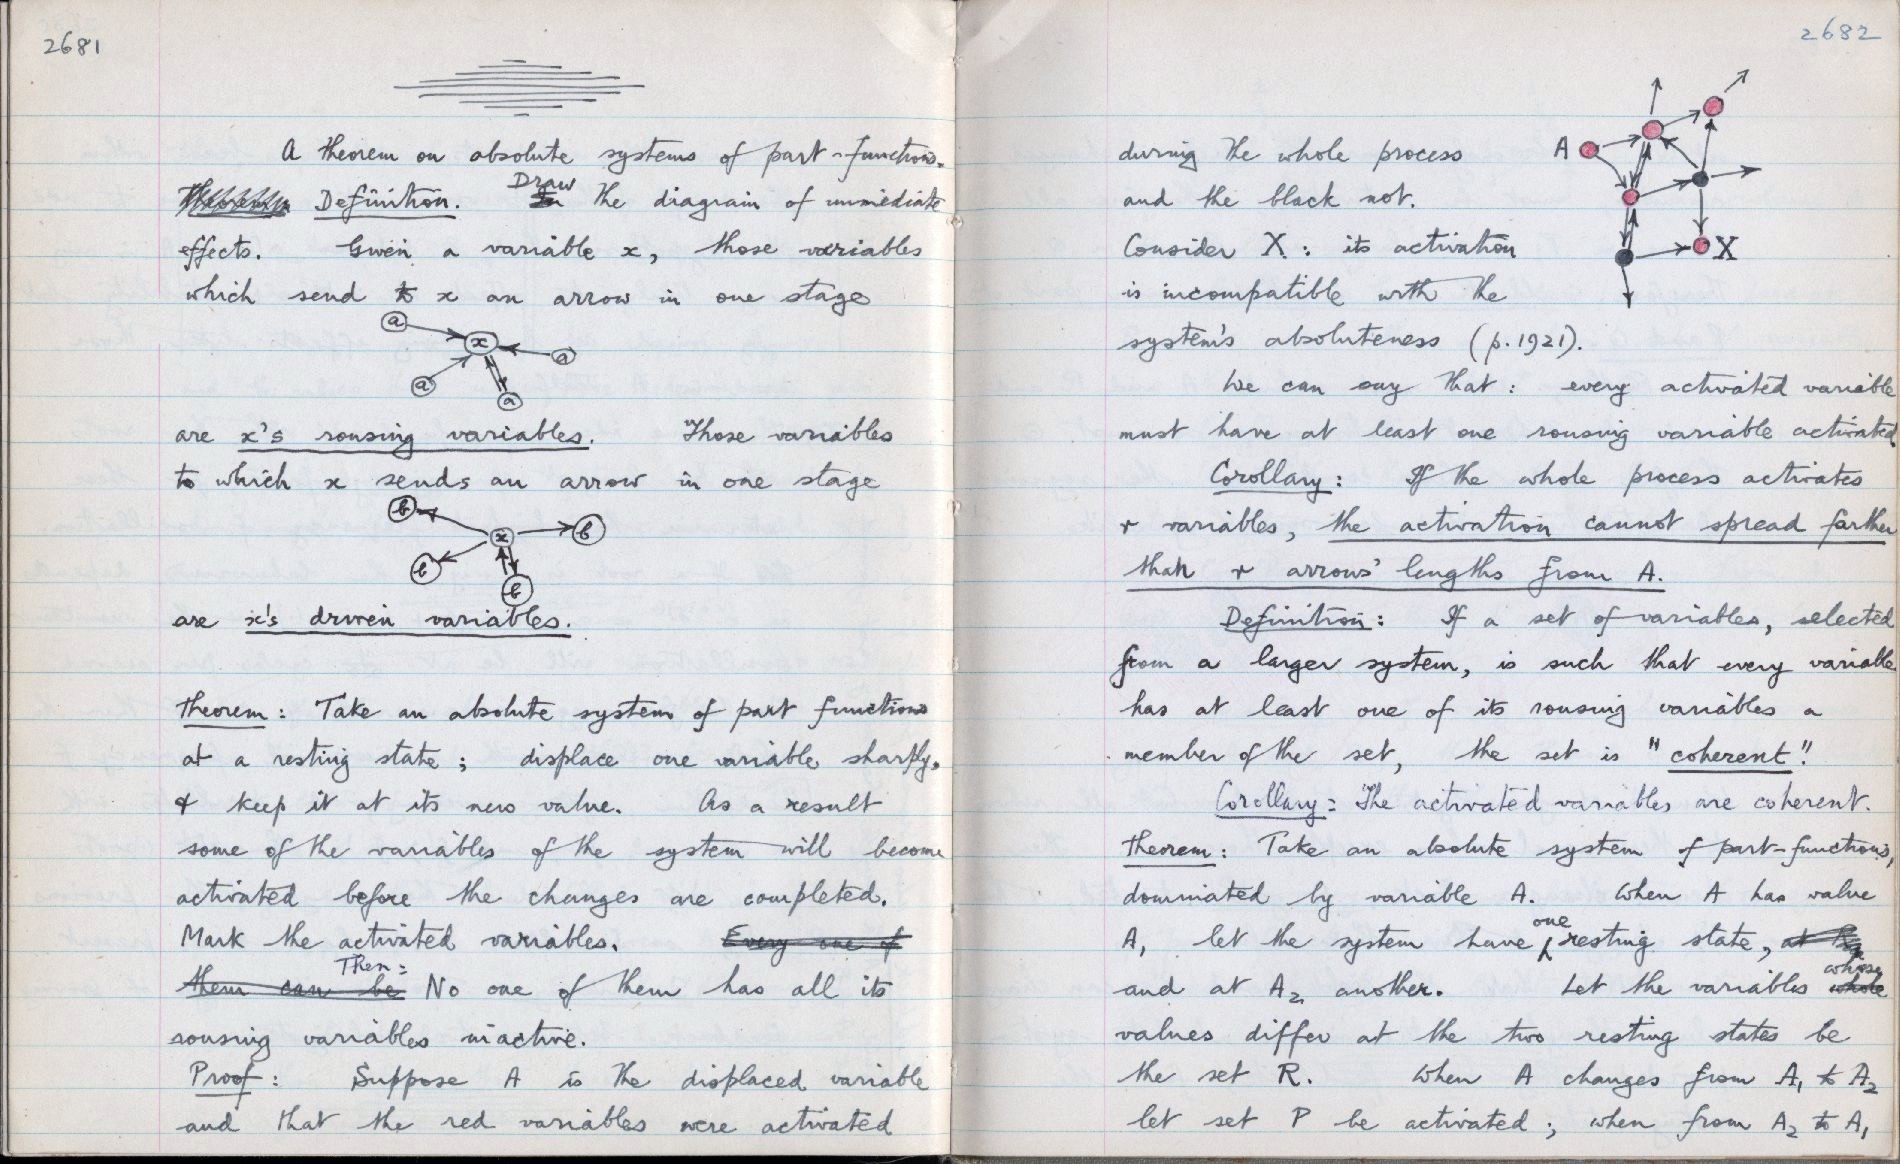 2681
A theorem on absolute systems of part-functions.
Definition. Draw the diagram of immediate
effects. Given a variable x, those variables
which send to x an arrow in one stage
a
x
a
a
a
are x's rousing variables. Those variables
to which x sends an arrow in one stage
b
x
b
b
b
are x's driven variables.
Theorem: Take an absolute system of part functions
at a resting state; displace one variable sharply,
& keep it at its new value. As a result
some of the variables of the system will become
activated before the changes are completed.
Mark the activated variables. Every one of
them can be Then: No one of them has all its
rousing variables inactive.
Proof: Suppose A is the displaced variable
and that the red variables were activated
2682
during the whole process
A
and the black not.
Consider X: its activation
X
is incompatible with the
system's absoluteness (p.1921).
We can say that: every activated variable
must have at least one rousing variable activated.
Corollary: If the whole process activates
r variables, the activation cannot spread farther
than r arrows' lengths from A.
Definition: If a set of variables, selected
from a larger system, is such that every variable
has at least one of its rousing variables a
member of the set, the set is "coherent".
Corollary: The activated variables are coherent.
Theorem: Take an absolute system of part-functions,
dominated by variable A. When A has value
A₁ let the system have one resting state, at
and at A₂ another. Let the variables whose
values differ at the two resting states be
the set R. When A changes from A₁ to A₂
let set P be activated; when from A₂ to A₁